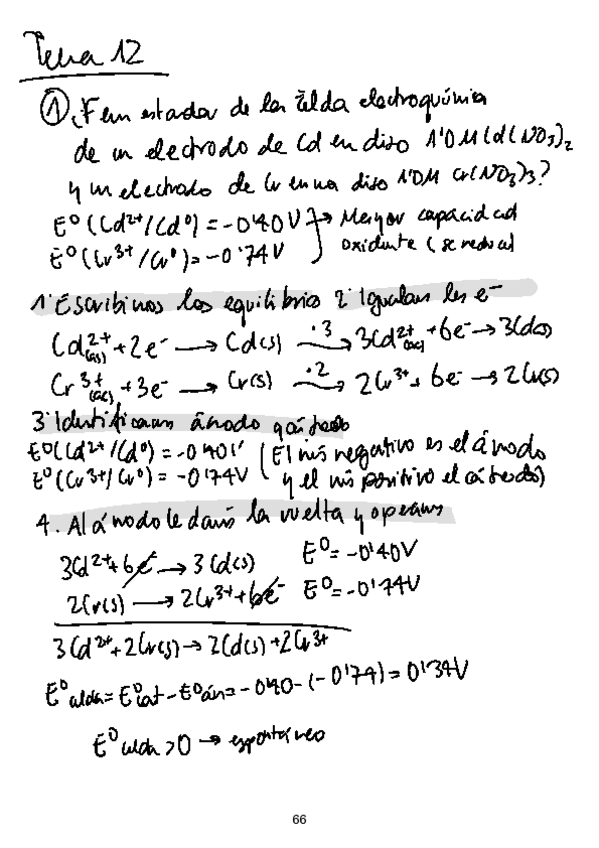 Tema 12
① ¿Fem estándar de la celda electroquímica
de un electrodo de Cd en diso 1'0M Cd(NO3)2
y un electrodo de Cr en una diso 1'0M Cr(NO3)3?
E⁰(Cd²⁺/Cd⁰) = -0'40V → Mayor capacidad
E⁰(Cr³⁺/Cr⁰) = -0'74V oxidante (se reduce)
1. Escribimos los equilibrios 2. Igualan los e⁻
Cd²⁺(ac) + 2e⁻ → Cd(s) ·3→ 3Cd²⁺(ac) + 6e⁻ → 3Cd(s)
Cr³⁺(ac) + 3e⁻ → Cr(s) ·2→ 2Cr³⁺ + 6e⁻ → 2Cr(s)
3. Identificamos ánodo y cátodo
E⁰(Cd²⁺/Cd⁰) = -0'40V (El más negativo es el ánodo
E⁰(Cr³⁺/Cr⁰) = -0'74V y el más positivo el cátodo)
4. Al ánodo le damos la vuelta y operamos
3Cd²⁺ + 6e⁻ → 3Cd(s) E⁰ = -0'40V
2Cr(s) → 2Cr³⁺ + 6e⁻ E⁰ = -0'74V
3Cd²⁺ + 2Cr(s) → 3Cd(s) + 2Cr³⁺
E⁰celda = E⁰cat - E⁰án = -0'40 - (-0'74) = 0'34V
E⁰celda > 0 → espontáneo
66